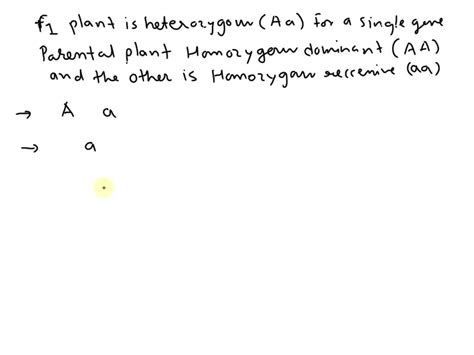 f1 plant is heterozygous (Aa) for a single gene
Parental plant Homozygous dominant (AA)
and the other is Homozygous reccessive (aa)
→ A a
→ a